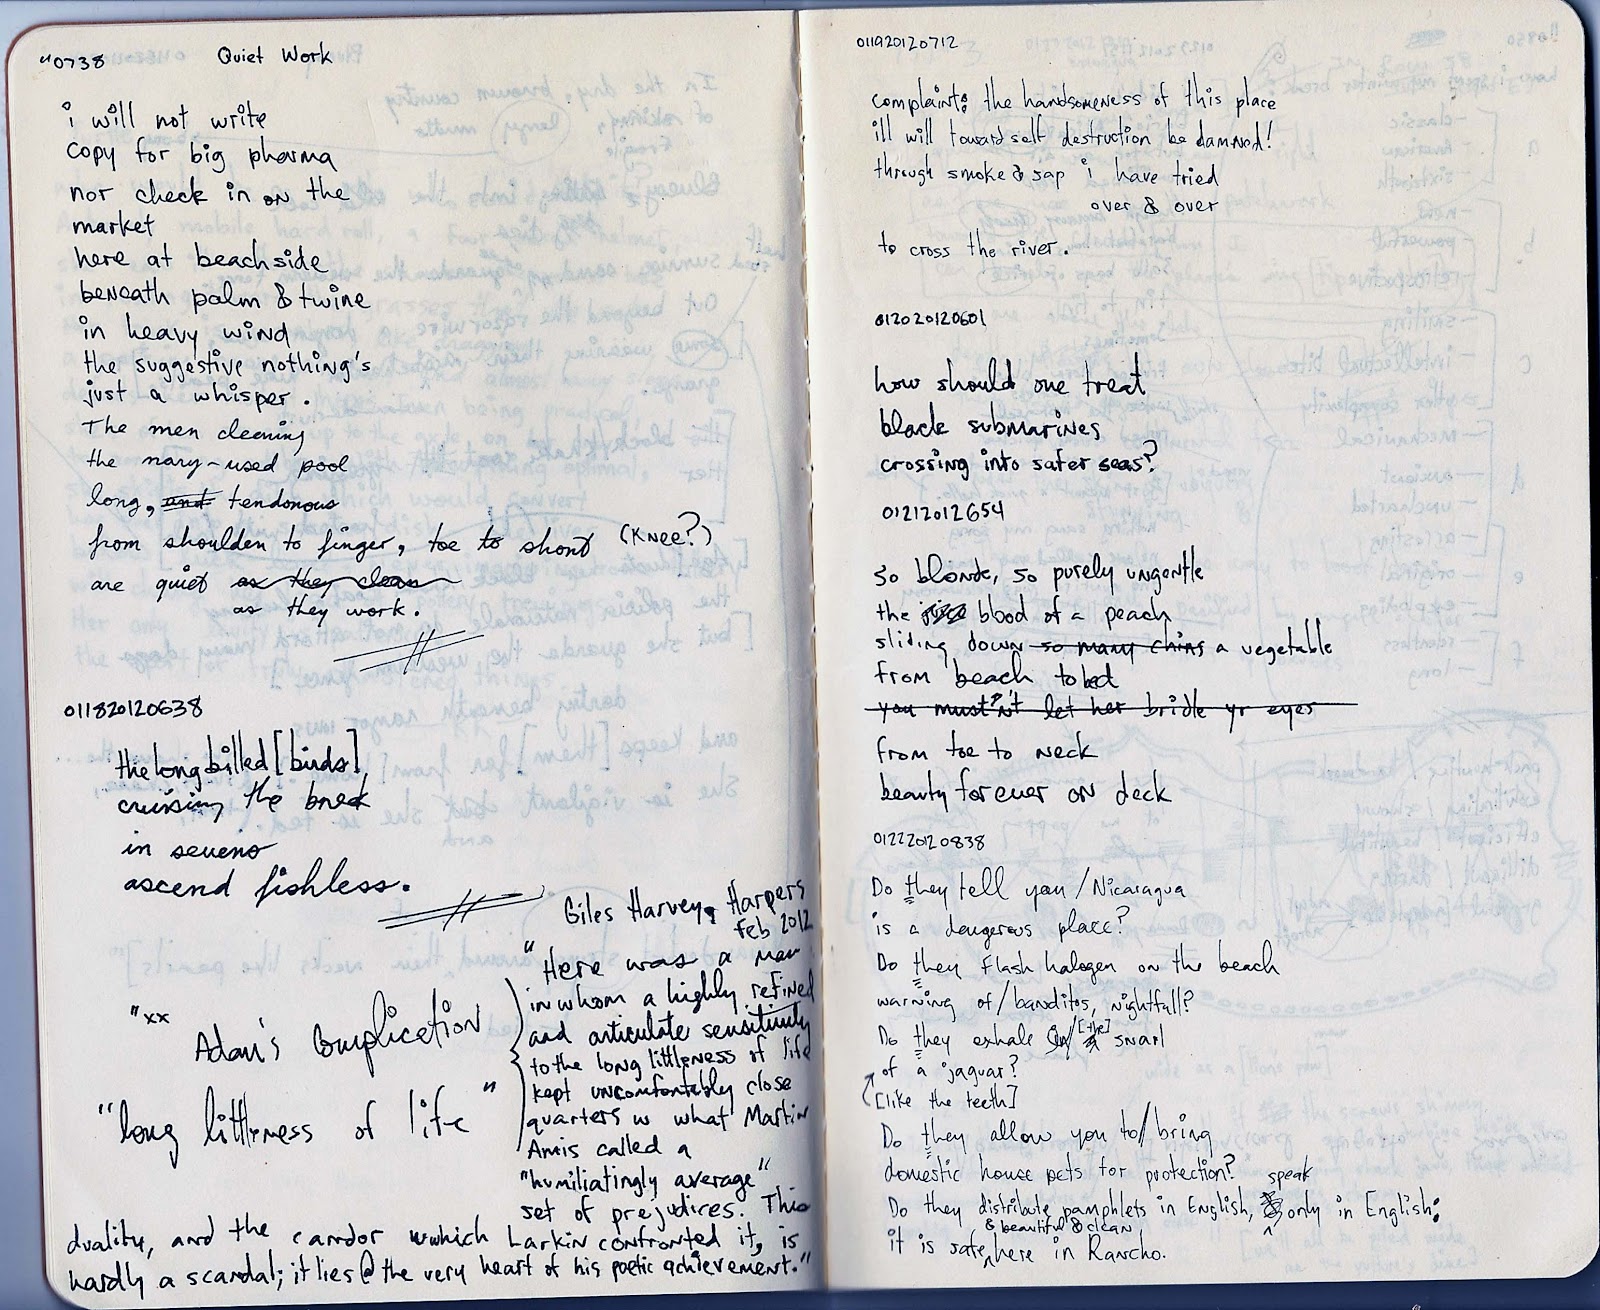 "0738 Quiet Work
i will not write
copy for big pharma
nor check in on the
market
here at beachside
beneath palm & twine
in heavy wind
the suggestive nothing's
just a whisper.
The men cleaning
the nary-used pool
long, and tendonous
from shoulder to finger, toe to short (knee?)
are quiet as they clean
as they work.
011820120638
the long billed [birds],
cruising the break
in severo
ascend fishless.
Giles Harvey, Harpers
Feb 2012
"xx
Adam's Complication
"long littleness of life"
"Here was a man
in whom a highly refined
and articulate sensitivity
to the long littleness of life
kept uncomfortably close
quarters w what Martin
Amis called a
"humiliatingly average"
set of prejudices. This
duality, and the candor w which Larkin confronted it, is
hardly a scandal; it lies @ the very heart of his poetic achievement."
011920120712
complaint: the handsomeness of this place
ill will toward self destruction be damned!
through smoke & sap i have tried
over & over
to cross the river.
012020120601
how should one treat
black submarines
crossing into safer seas?
01212012654
so blonde, so purely ungentle
the blood of a peach
sliding down so many chins a vegetable
from beach to bed
you mustn't let her bridle yr eyes
from toe to neck
beauty forever on deck
012220120838
Do they tell you/Nicaragua
is a dangerous place?
Do they flash halogen on the beach
warning of/banditos, nightfall?
Do they exhale [the] snarl
of a jaguar?
[like the teeth]
Do they allow you to/bring
domestic house pets for protection?
Do they distribute pamphlets in English, speak only in English:
it is safe & beautiful & clean here in Rancho.